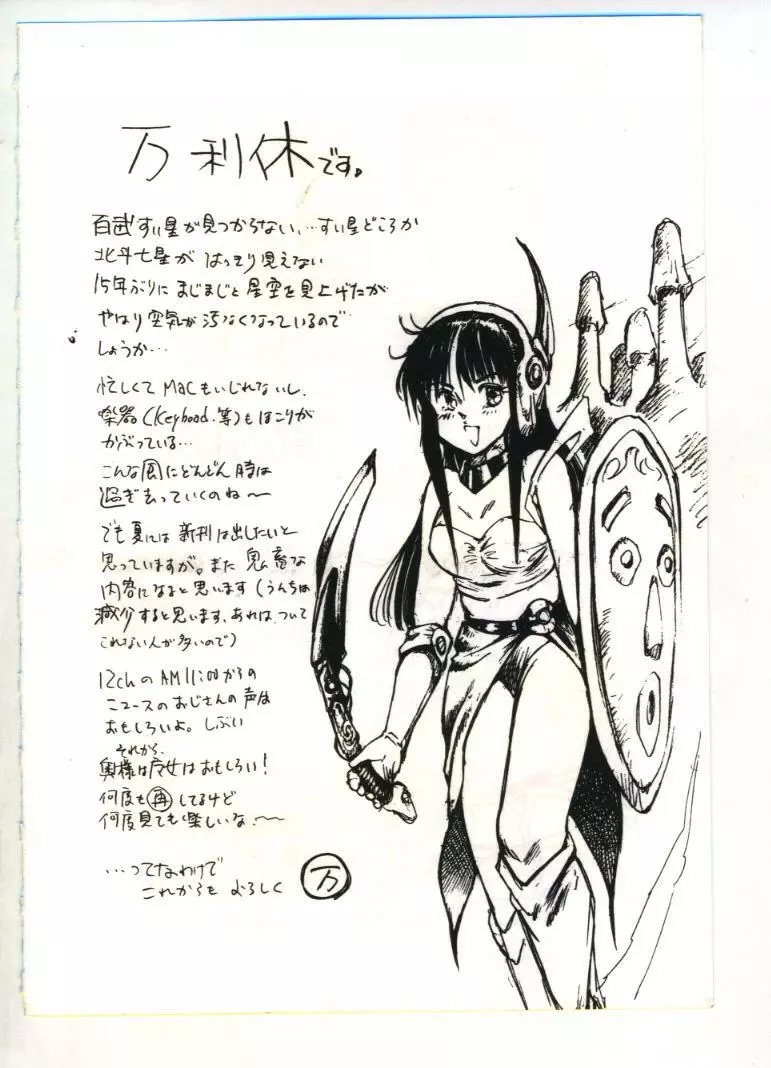 万利休です。
百武すい星が見つからない、…すい星どころか
北斗七星が はっきり見えない
15年ぶりに まじまじと 星空を見上げたが
やはり空気が汚なくなっているので
しょうか…
忙しくて Macもいじれないし、
楽器(Keyboad.等)もほこりが
かぶっている…
こんな風にどんどん時は
過ぎ去っていくのね〜
でも夏には 新刊は出したいと
思っていますが。また鬼畜な
内容になると思います(うんちは
減少すると思います、あれは、ついて
これない人が多いので)
12chのAM11:00からの
ニュースのおじさんの声は
おもしろいよ。しぶい
それから、
奥様は魔女はおもしろい!
何度も再してるけど
何度見ても楽しいな〜
…ってなわけで
これからも よろしく
万